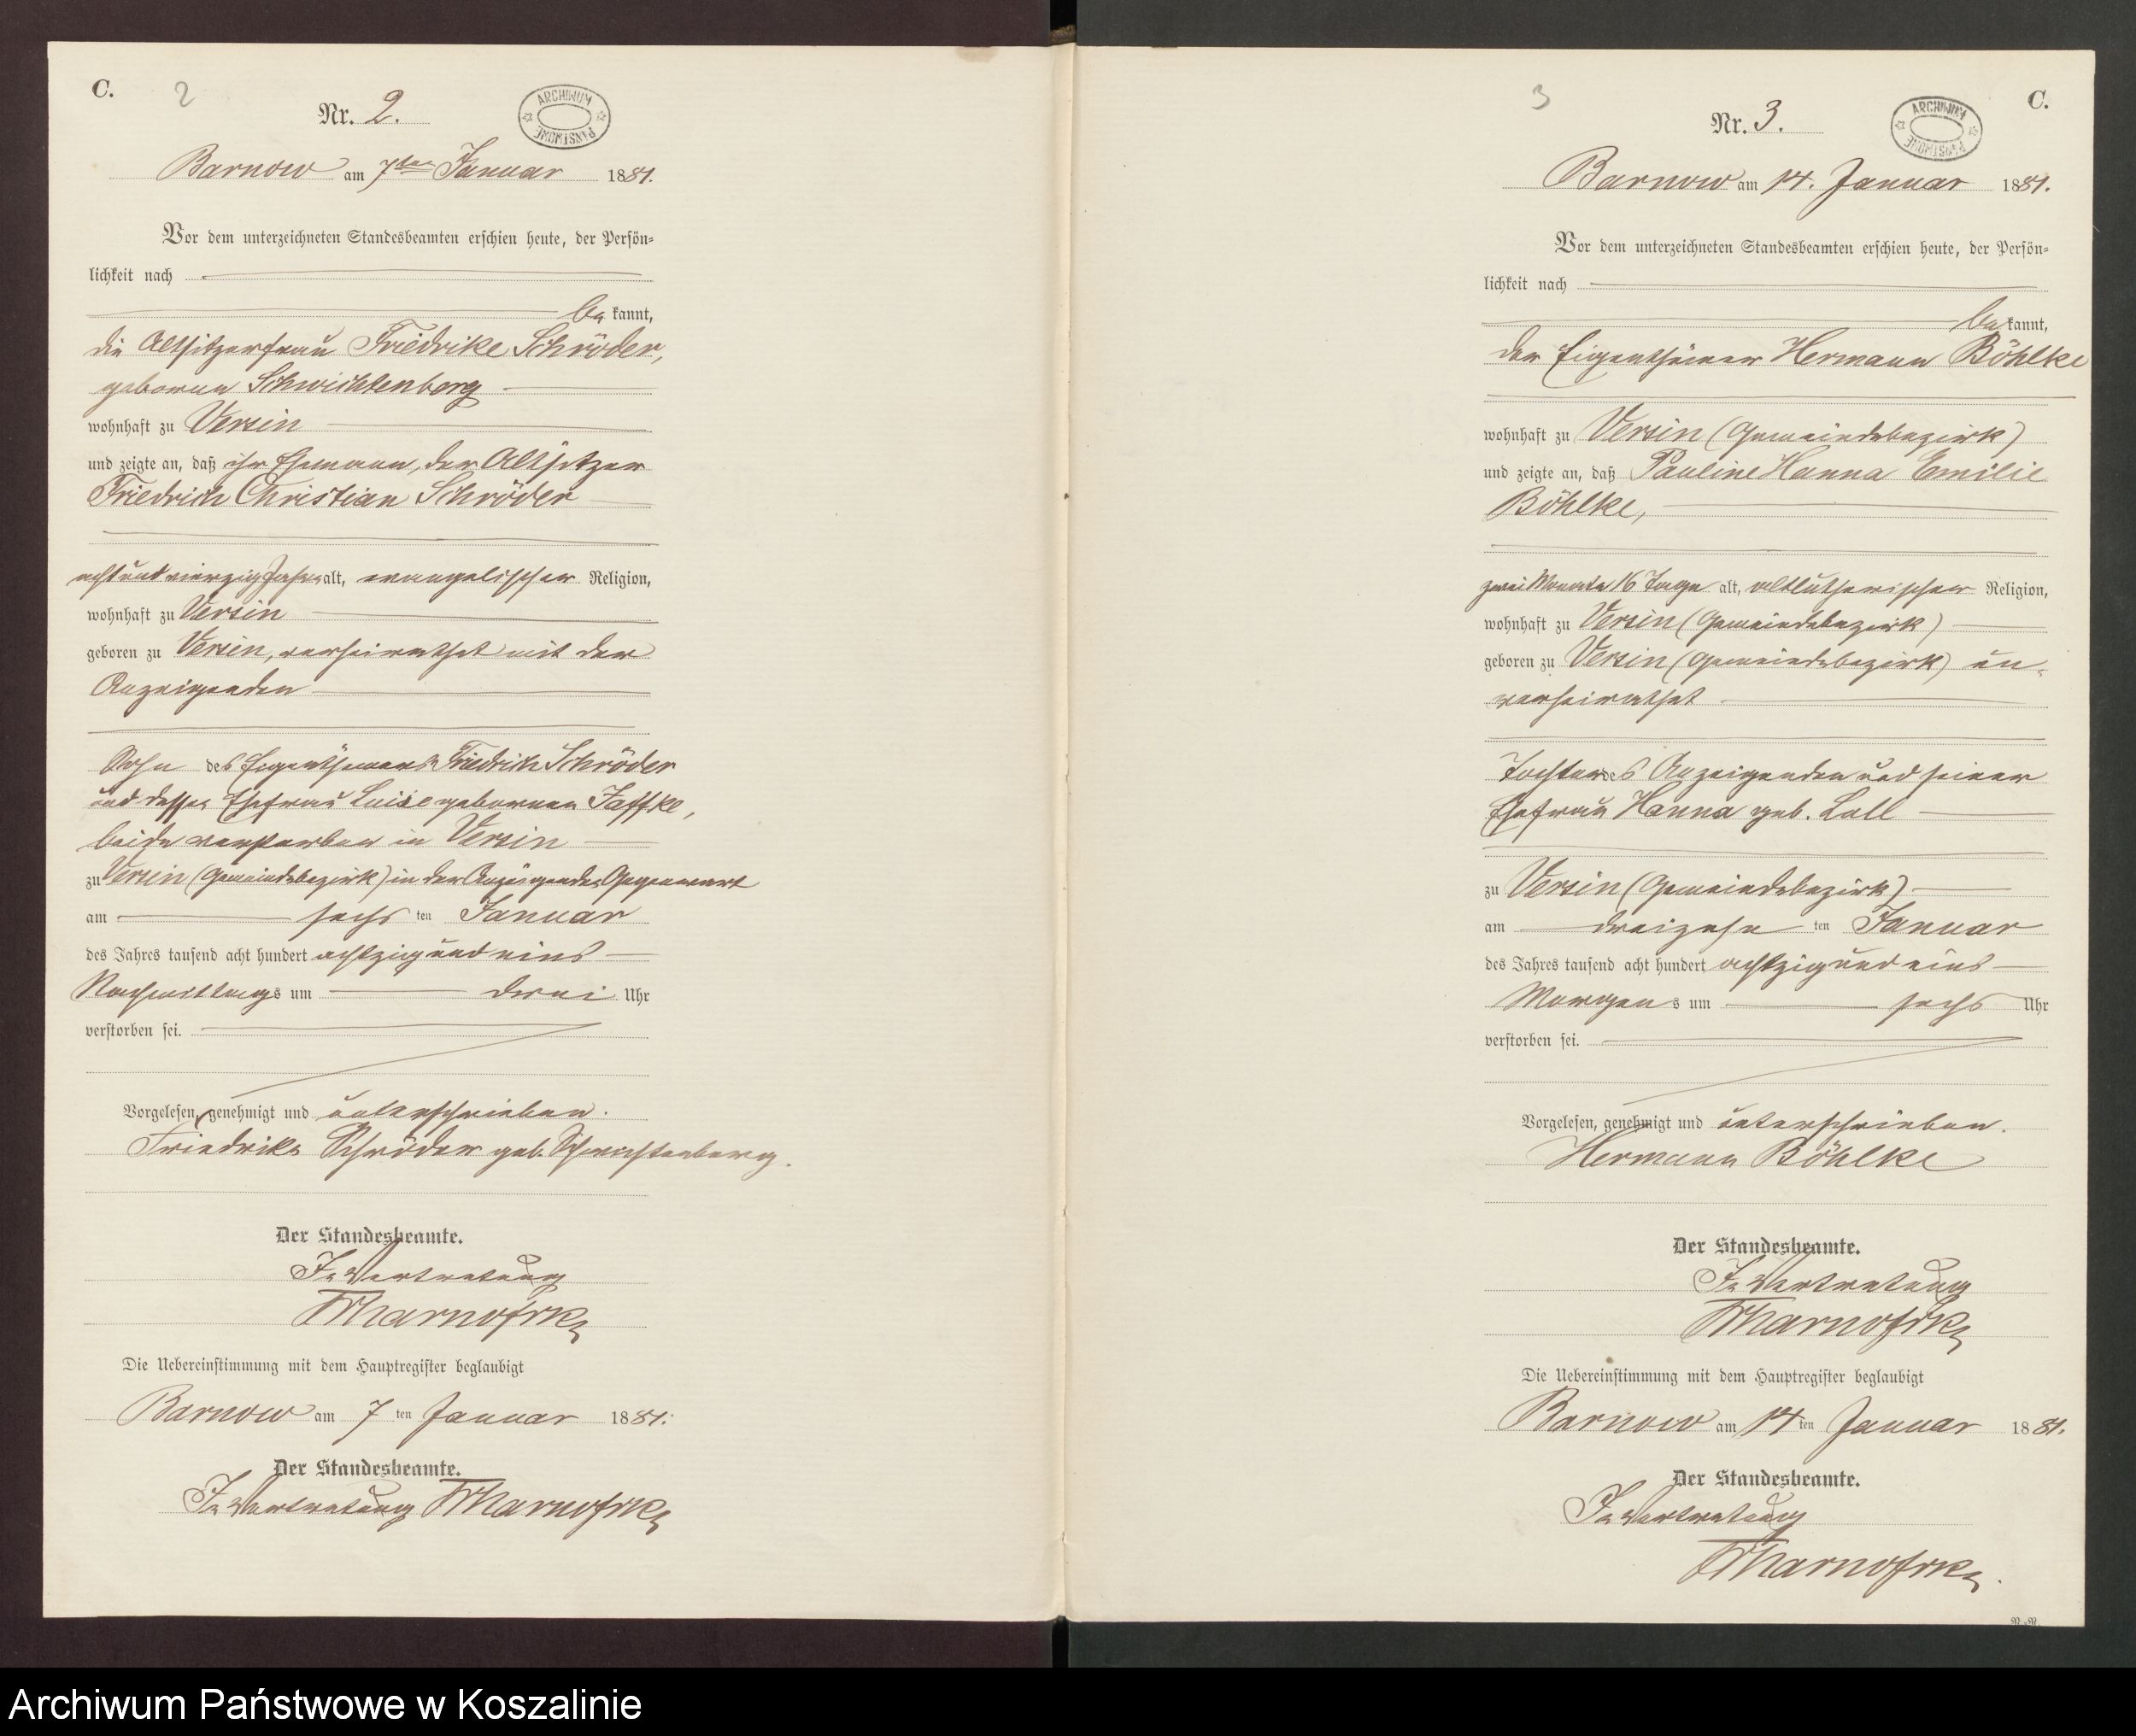 C.
2
Nr. 2.
ARCHIWUM PAŃSTWOWE
Barnow am 7ten Januar 1881.
Vor dem unterzeichneten Standesbeamten erschien heute, der Persön-
lichkeit nach
be kannt,
die Altsitzerfrau Friedrike Schröder,
geborene Schwichtenberg
wohnhaft zu Versin
und zeigte an, daß ihr Ehemann, der Altsitzer
Friedrich Christian Schröder
achtundvierzig Jahre alt, evangelischer Religion,
wohnhaft zu Versin
geboren zu Versin, verheirathet mit der
Anzeigenden
Sohn des Eigenthümers Friedrich Schröder
und dessen Ehefrau Luise geborenen Jaffke,
beide verstorben in Versin
zu Versin (Gemeindebezirk) in der Anzeigenden Gegenwart
am sechs ten Januar
des Jahres tausend acht hundert achtzig und eins
Nachmittags um drei Uhr
verstorben sei.
Vorgelesen, genehmigt und unterschrieben.
Friedrike Schröder geb. Schwichtenberg.
Der Standesbeamte.
In Vertretung
Die Uebereinstimmung mit dem Hauptregister beglaubigt
Barnow am 7 ten Januar 1881.
Der Standesbeamte.
In Vertretung
3
C.
Nr. 3.
ARCHIWUM PAŃSTWOWE
Barnow am 14. Januar 1881.
Vor dem unterzeichneten Standesbeamten erschien heute, der Persön-
lichkeit nach
be kannt,
der Eigenthümer Hermann Böhlke
wohnhaft zu Versin (Gemeindebezirk)
und zeigte an, daß Pauline Hanna Emilie
Böhlke,
zwei Monate 16 Tage alt, altlutherischer Religion,
wohnhaft zu Versin (Gemeindebezirk)
geboren zu Versin (Gemeindebezirk) un-
verheirathet
Tochter des Anzeigenden und seiner
Ehefrau Hanna geb. Lall
zu Versin (Gemeindebezirk)
am dreizehn ten Januar
des Jahres tausend acht hundert achtzig und eins
Morgens um sechs Uhr
verstorben sei.
Vorgelesen, genehmigt und unterschrieben.
Hermann Böhlke
Der Standesbeamte.
In Vertretung
Die Uebereinstimmung mit dem Hauptregister beglaubigt
Barnow am 14 ten Januar 1881.
Der Standesbeamte.
In Vertretung
Archiwum Państwowe w Koszalinie